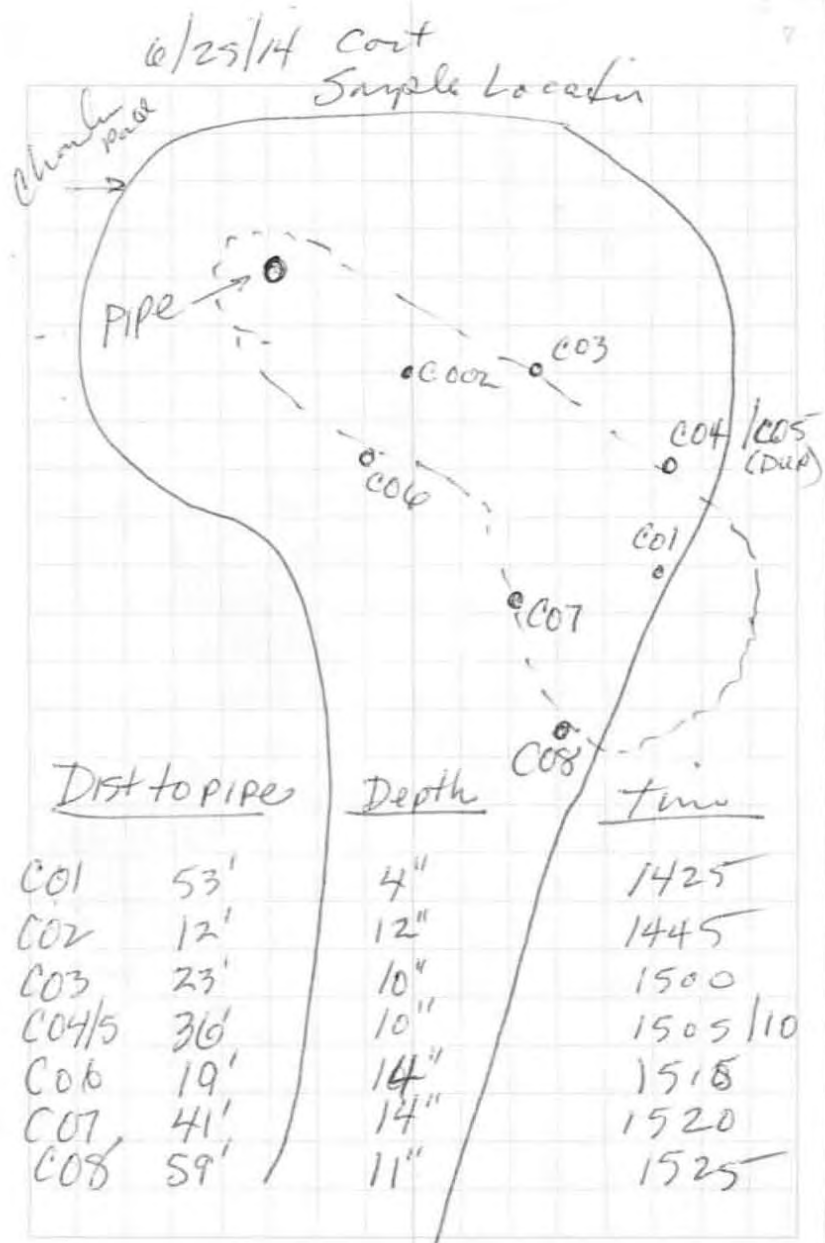 6/25/14 Cont
Sample Location
PIPE
C002
C03
C04/C05
(DUP)
C06
C01
C07
C08
Dist to pipe Depth Time
C01 53' 4" 1425
C02 12' 12" 1445
C03 23' 10" 1500
C04/5 36' 10" 1505/10
C06 19' 14" 1515
C07 41' 14" 1520
C08 59' 11" 1525